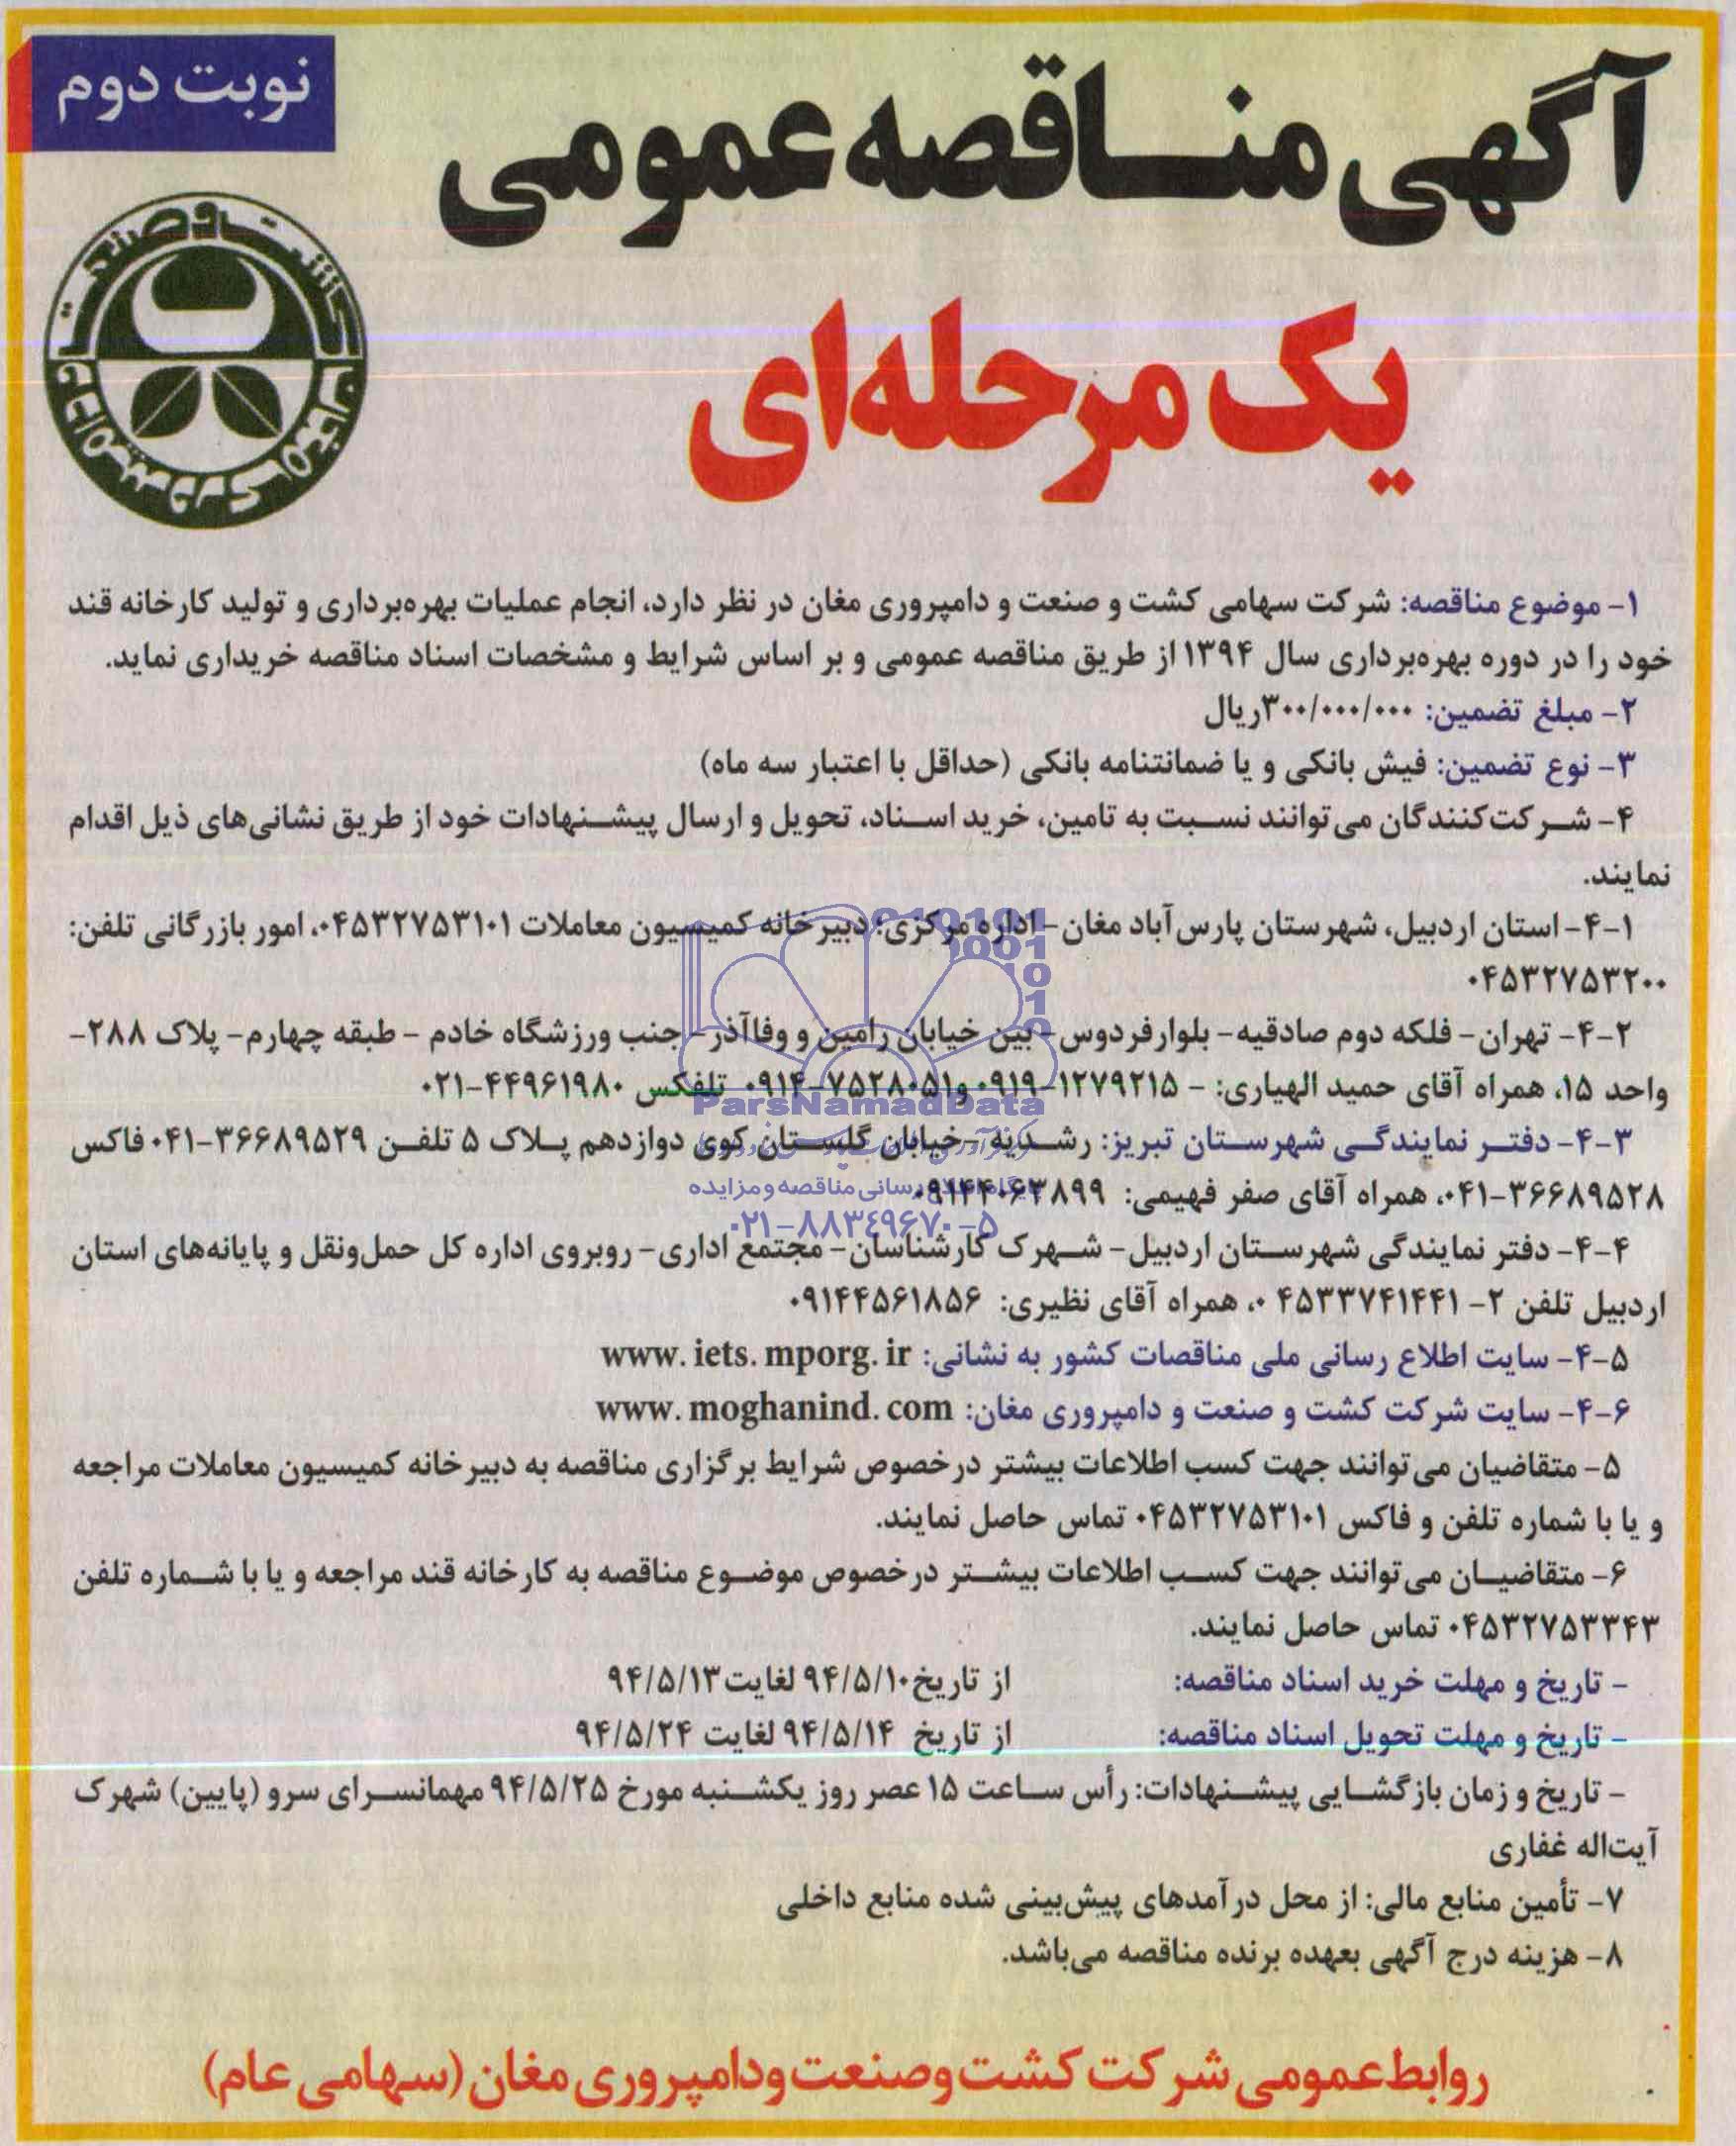 نوبت دوم
آگهی مناقصه عمومی
یک مرحله‌ای
کشت و صنعت
و دامپروری مغان
۱- موضوع مناقصه: شرکت سهامی کشت و صنعت و دامپروری مغان در نظر دارد، انجام عملیات بهره‌برداری و تولید کارخانه قند
خود را در دوره بهره‌برداری سال ۱۳۹۴ از طریق مناقصه عمومی و بر اساس شرایط و مشخصات اسناد مناقصه خریداری نماید.
۲- مبلغ تضمین: ۳۰۰/۰۰۰/۰۰۰ریال
۳- نوع تضمین: فیش بانکی و یا ضمانتنامه بانکی (حداقل با اعتبار سه ماه)
۴- شرکت‌کنندگان می‌توانند نسبت به تامین، خرید اسناد، تحویل و ارسال پیشنهادات خود از طریق نشانی‌های ذیل اقدام
نمایند.
۴-۱- استان اردبیل، شهرستان پارس‌آباد مغان- اداره مرکزی؛ دبیرخانه کمیسیون معاملات ۰۴۵۳۲۷۵۳۱۰۱، امور بازرگانی تلفن:
۰۴۵۳۲۷۵۳۲۰۰
۴-۲- تهران- فلکه دوم صادقیه- بلوار فردوس- بین خیابان رامین و وفاآذر- جنب ورزشگاه خادم - طبقه چهارم- پلاک ۲۸۸-
واحد ۱۵، همراه آقای حمید الهیاری: - ۱۲۷۹۲۱۵-۰۹۱۹ و۷۵۲۸۰۵۱-۰۹۱۴ تلفکس ۴۴۹۶۱۹۸۰-۰۲۱
ParsNamadData
۴-۳- دفتر نمایندگی شهرستان تبریز: رشدیه -خیابان گلستان کوی دوازدهم پلاک ۵ تلفن ۳۶۶۸۹۵۲۹-۰۴۱ فاکس
۳۶۶۸۹۵۲۸-۰۴۱، همراه آقای صفر فهیمی: ۰۹۱۴۴۰۶۳۸۹۹
پایگاه اطلاع رسانی مناقصه و مزایده
۰۲۱-۸۸۳۴۹۶۷۰-۵
۴-۴- دفتر نمایندگی شهرستان اردبیل- شهرک کارشناسان- مجتمع اداری- روبروی اداره کل حمل‌ونقل و پایانه‌های استان
اردبیل تلفن ۲- ۴۵۳۳۷۴۱۴۴۱ ۰، همراه آقای نظیری: ۰۹۱۴۴۵۶۱۸۵۶
۴-۵- سایت اطلاع رسانی ملی مناقصات کشور به نشانی: www. iets. mporg. ir
۴-۶- سایت شرکت کشت و صنعت و دامپروری مغان: www. moghanind. com
۵- متقاضیان می‌توانند جهت کسب اطلاعات بیشتر درخصوص شرایط برگزاری مناقصه به دبیرخانه کمیسیون معاملات مراجعه
و یا با شماره تلفن و فاکس ۰۴۵۳۲۷۵۳۱۰۱ تماس حاصل نمایند.
۶- متقاضیان می‌توانند جهت کسب اطلاعات بیشتر درخصوص موضوع مناقصه به کارخانه قند مراجعه و یا با شماره تلفن
۰۴۵۳۲۷۵۳۳۴۳ تماس حاصل نمایند.
- تاریخ و مهلت خرید اسناد مناقصه: از تاریخ۹۴/۵/۱۰ لغایت۹۴/۵/۱۳
- تاریخ و مهلت تحویل اسناد مناقصه: از تاریخ ۹۴/۵/۱۴ لغایت ۹۴/۵/۲۴
- تاریخ و زمان بازگشایی پیشنهادات: رأس ساعت ۱۵ عصر روز یکشنبه مورخ ۹۴/۵/۲۵ مهمانسرای سرو (پایین) شهرک
آیت‌اله غفاری
۷- تأمین منابع مالی: از محل درآمدهای پیش‌بینی شده منابع داخلی
۸- هزینه درج آگهی بعهده برنده مناقصه می‌باشد.
روابط‌عمومی شرکت کشت‌وصنعت‌ودامپروری مغان (سهامی عام)